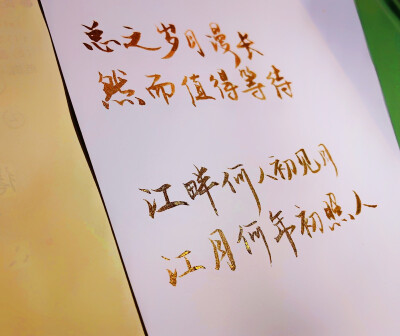 总之岁月漫长
然而值得等待
江畔何人初见月
江月何年初照人